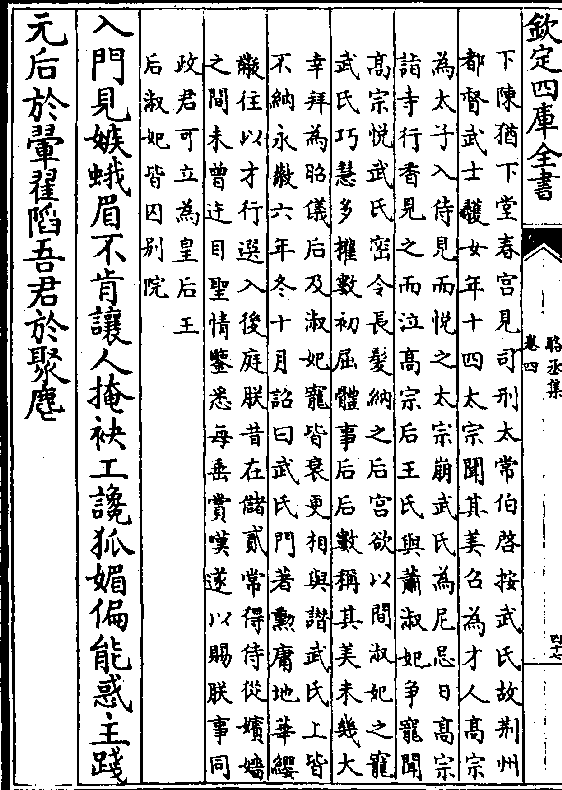 欽定四庫全書
駱丞集
卷四
四十七
下陳猶下堂春宫見司刑太常伯啓按武氏故荆州
都督武士彠女年十四太宗聞其美召為才人髙宗
為太子入侍見而悦之太宗崩武氏為尼忌日髙宗
詣寺行香見之而泣髙宗后王氏與蕭淑妃爭寵聞
髙宗悦武氏密令長髮納之后宫欲以間淑妃之寵
武氏巧慧多權數初屈體事后后數稱其美未幾大
幸拜為昭儀后及淑妃寵皆衰更相與譖武氏上皆
不納永徽六年冬十月詔曰武氏門著勲庸地華纓
黻往以才行選入後庭朕昔在儲貳常得侍從嬪嬙
之間未曾迕目聖情鑒悉每垂賞嘆遂以賜朕事同
政君可立為皇后王
后淑妃皆囚别院
入門見嫉蛾眉不肯讓人掩袂工讒狐媚偏能惑主踐
元后於翬翟䧟吾君於聚麀